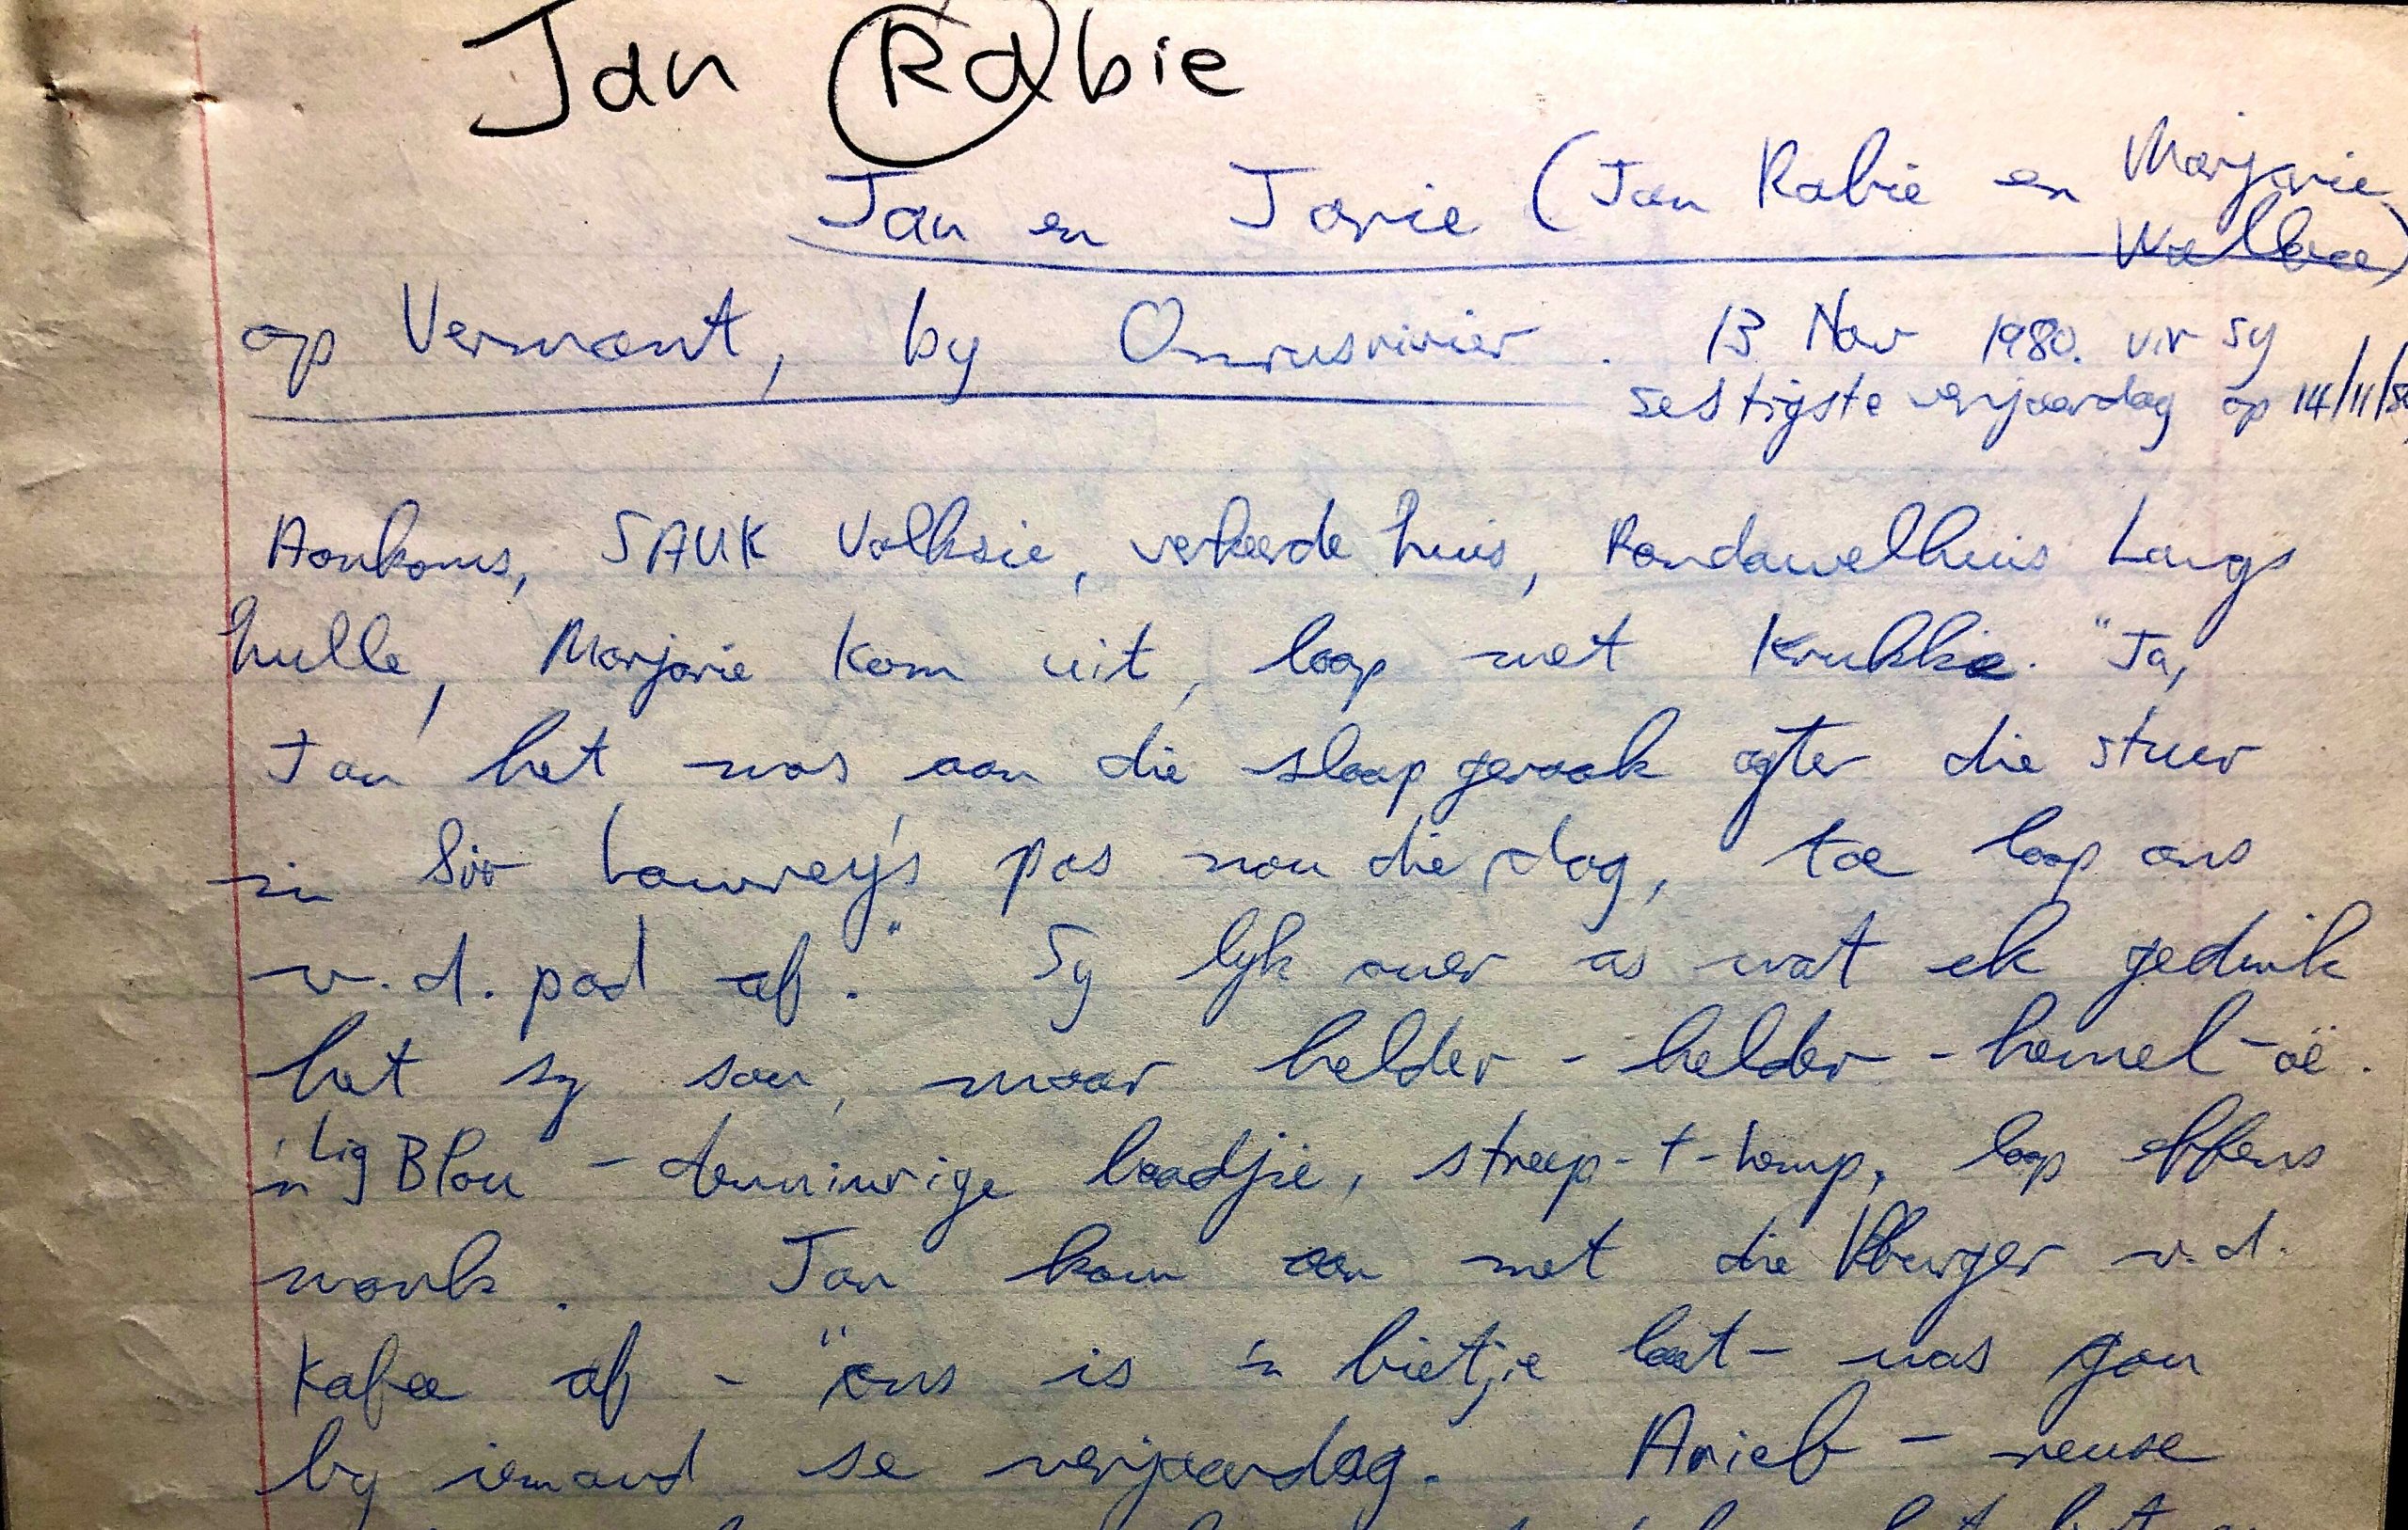 Jan Rabie
Jan en Jorie (Jan Rabie en Marjorie
Wallace)
op Vermont, by Onrusrivier. 13 Nov 1980. vir sy
sestigste verjaardag op 14/11/8
Aankoms, SAUK Volksie, verkeerde huis, Rondawelhuis Langs
hulle, Marjorie kom uit, loop met Krukke. "Ja,
Jan het mos aan die slaap geraak agter die stuur
in Sir Lowrey's pas nou die dag, toe loop ons
v.d. pad af." Sy lyk ouer as wat ek gedink
het sy sou, maar helder-helder-hemel-oë.
'n Lig Blou - baadjie, streep-t-hemp, loop effens
mank. Jan kom aan met die Burger v.d.
Kafee af - "ons is 'n bietjie laat - was gou
by iemand se verjaardag. Arieb - reuse